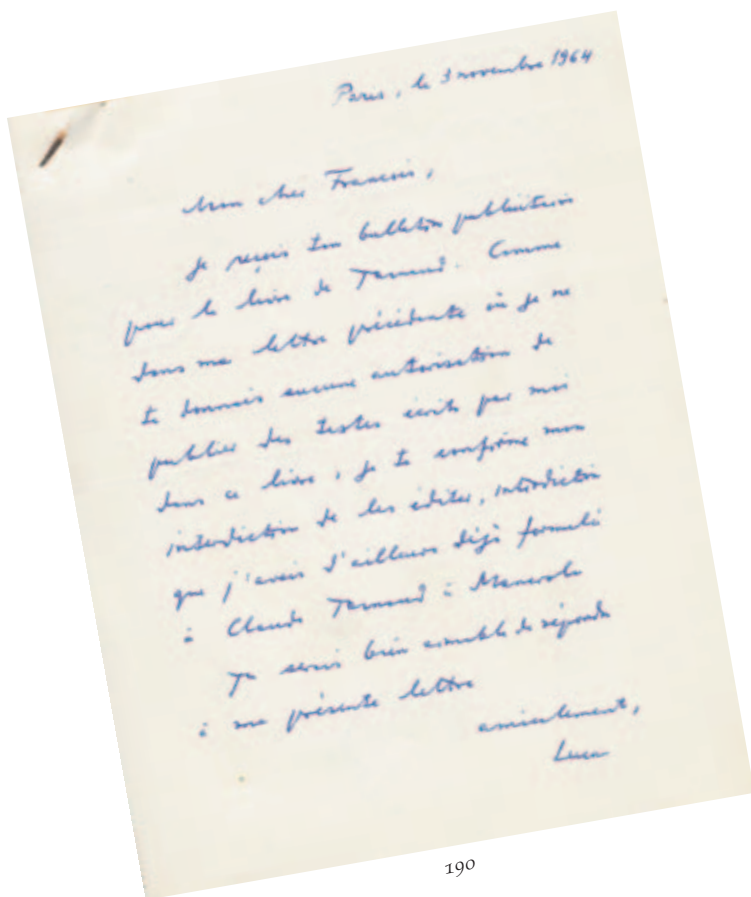 Paris, le 3 novembre 1964
Mon cher Francis,
Je reçois ton bulletin publicitaire
pour le livre de Tarnaud. Comme
dans ma lettre précédente où je ne
te donnais aucune autorisation de
publier des textes écrits par moi
dans ce livre, je te confirme mon
interdiction de les éditer, interdiction
que j'avais d'ailleurs déjà formulé
à Claude Tarnaud à Manosque
Tu serais bien aimable de répondre
à ma présente lettre
amicalement,
Luca
190